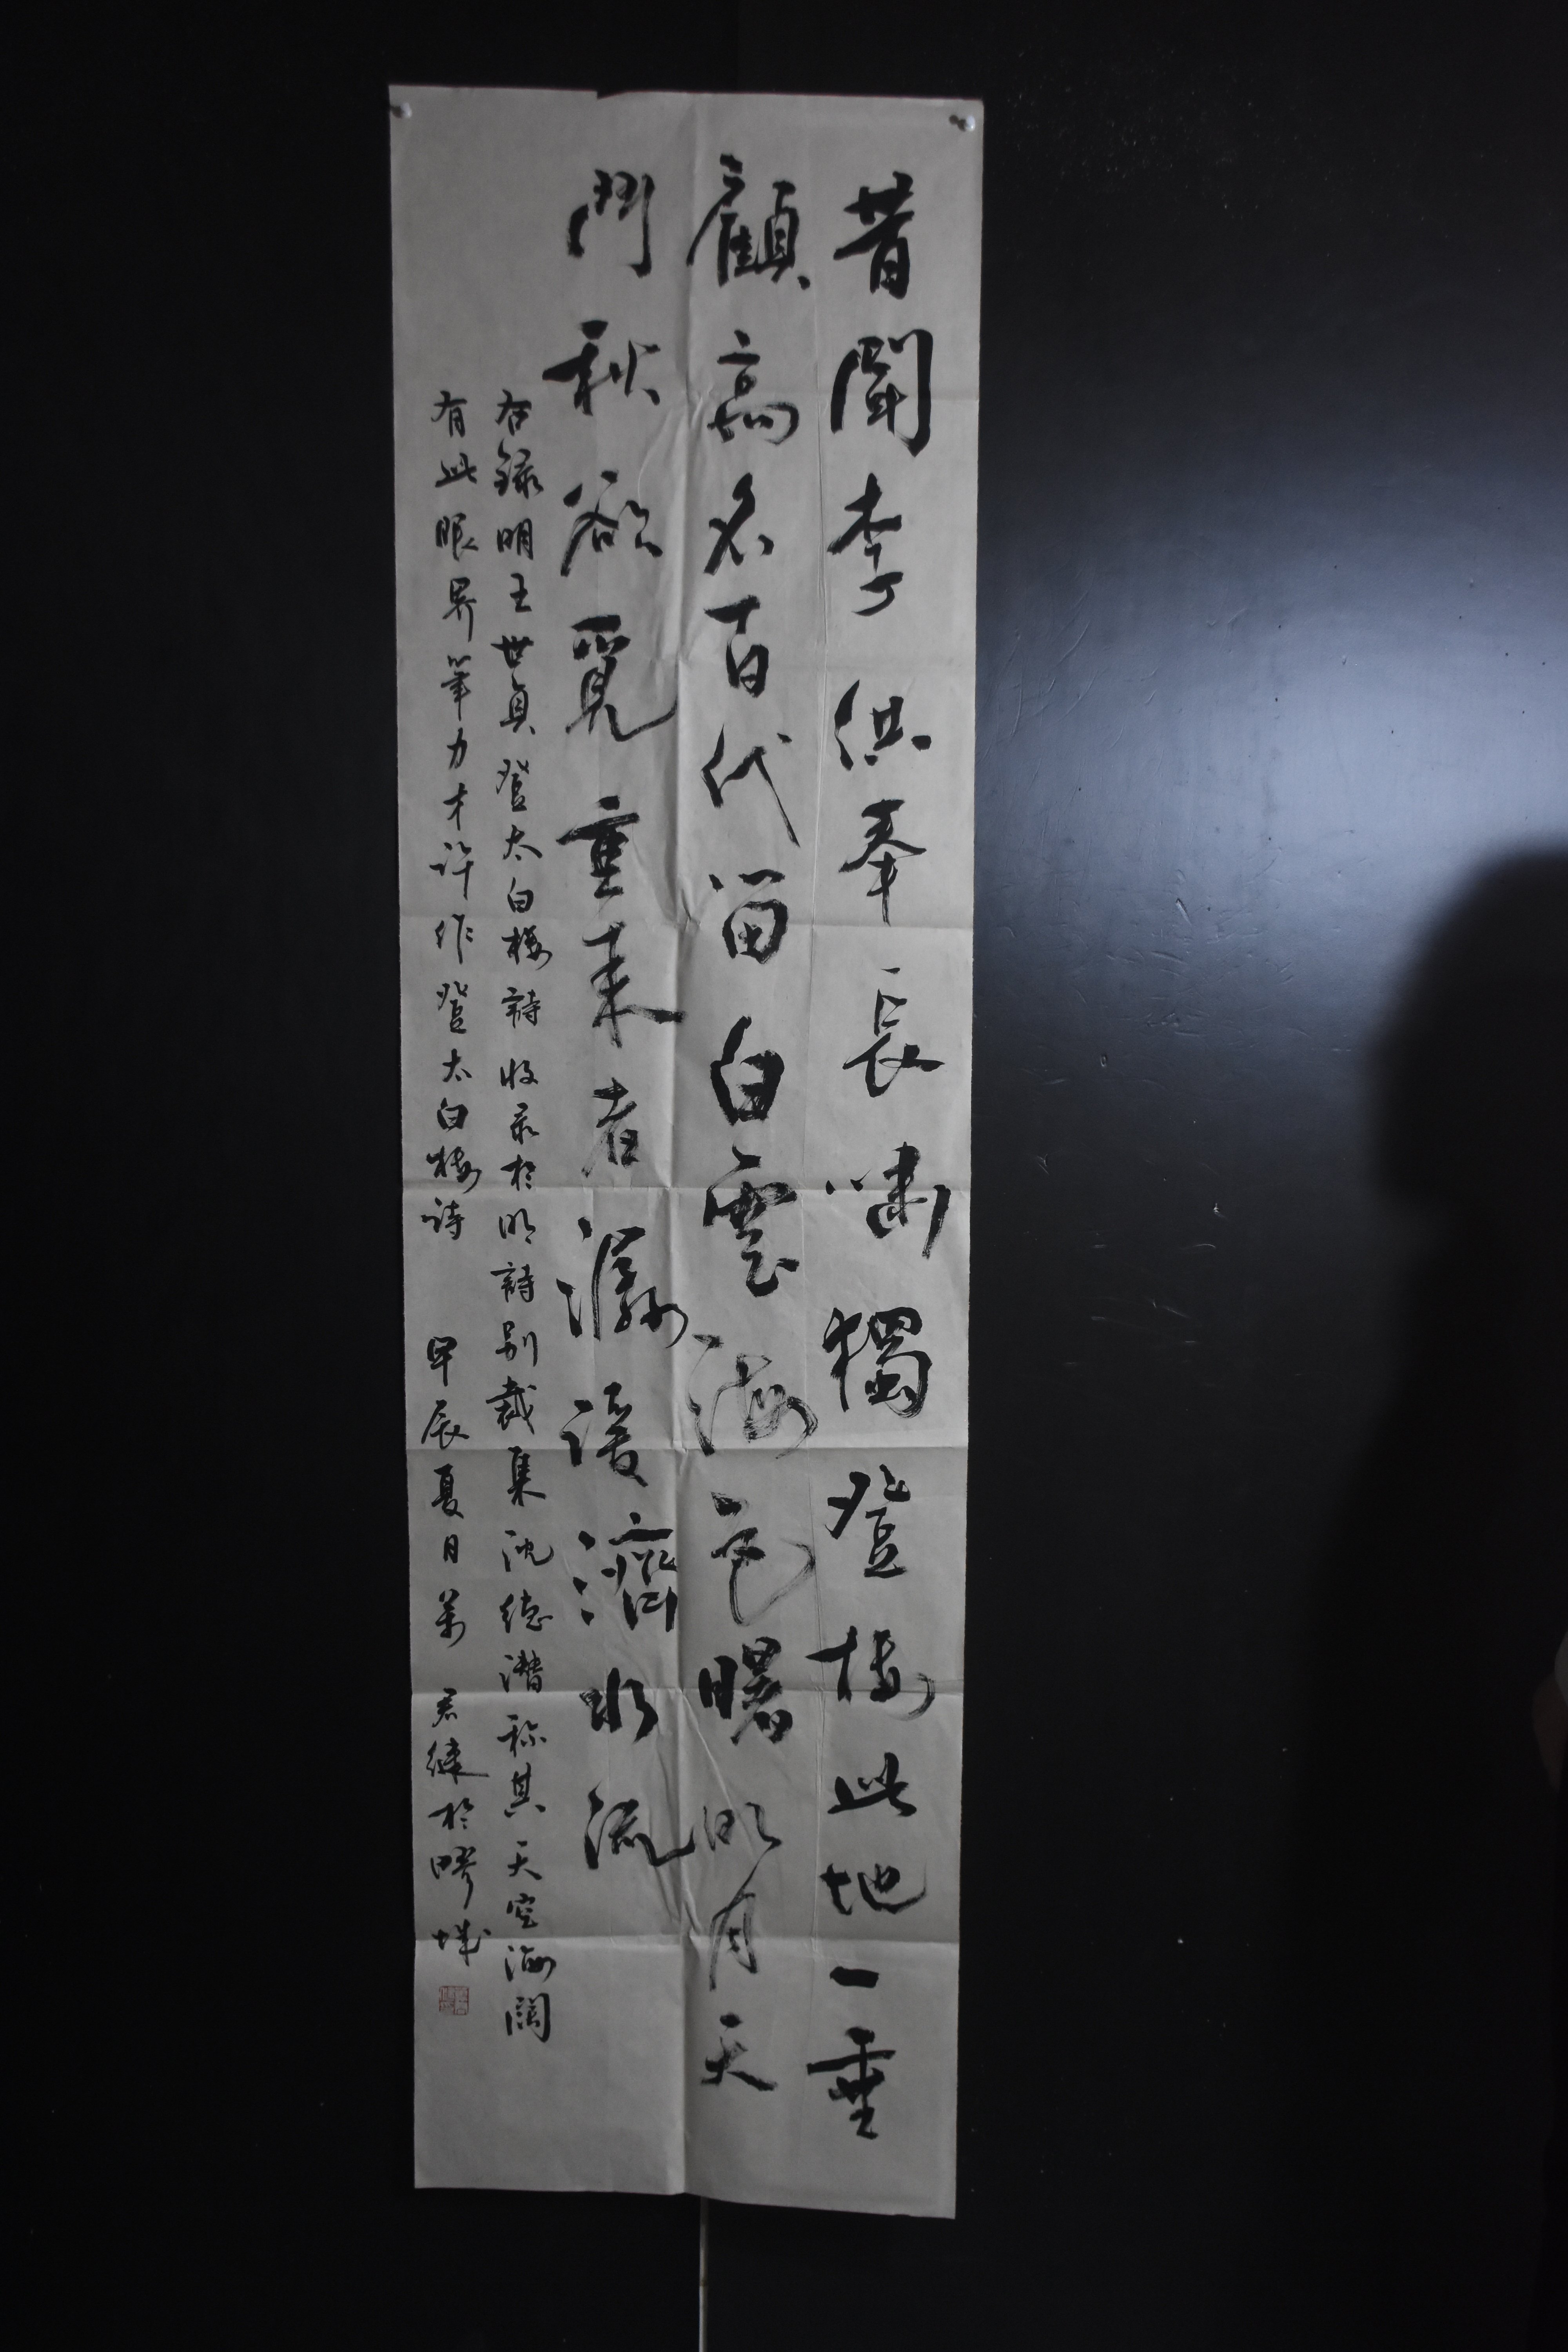 昔聞李供奉長嘯獨登樓此地一垂
顧高名百代留白雲海色曙明月天
門秋欲覓重来者潺湲濟水流
右録明王世貞登太白楼詩收录於明詩别裁集沈德潜称其天空海闊
有此眼界筆力才许作登太白楼诗 甲辰夏月 君健於